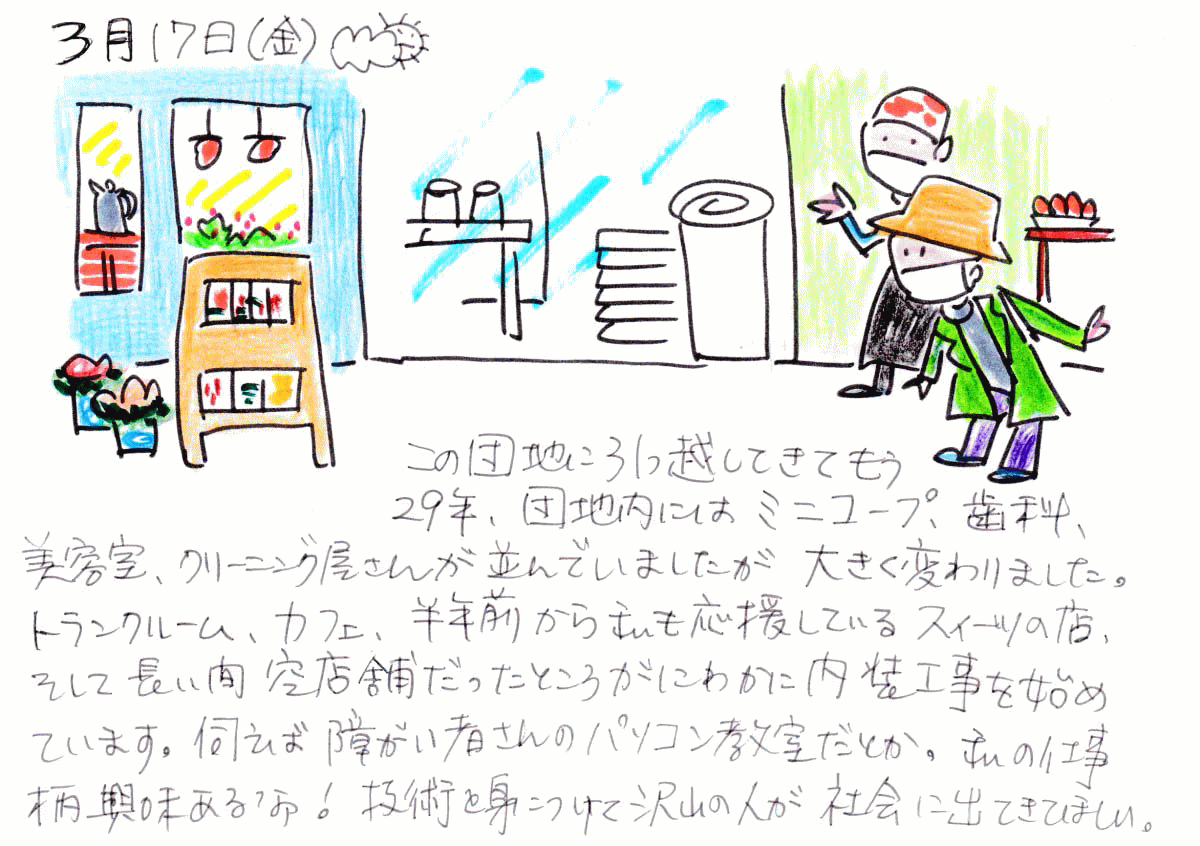 3月17日(金)
この団地に引っ越してきてもう
29年、団地内にはミニコープ、歯科、
美容室、クリーニング屋さんが並んでいましたが 大きく変わりました。
トランクルーム、カフェ、半年前から私も応援しているスイーツの店、
そして長い間 空店舗だったところがにわかに内装工事を始め
ています。伺えば障がい者さんのパソコン教室だとか。私の仕事
柄興味あるなあ! 技術を身につけて沢山の人が 社会に出てきてほしい。